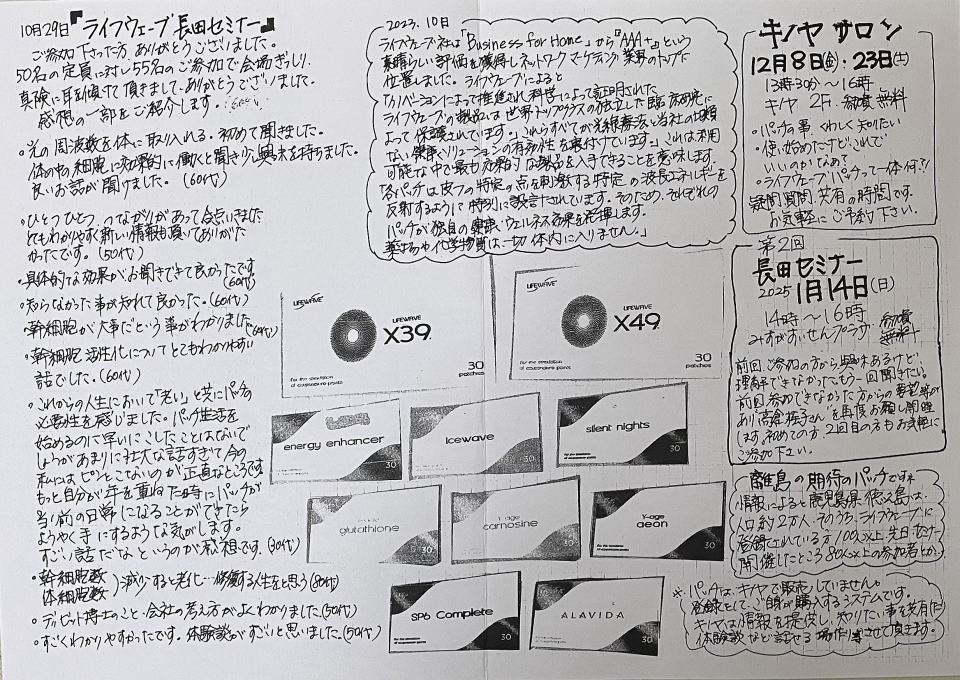 10月29日『ライフウェーブ長田セミナー』
ご参加下さった方、ありがとうございました。
50名の定員に対し55名のご参加で会場ぎっしり、
真険に耳を傾けて頂きまして、ありがとうございました。
感想の一部をご紹介します。
・光の周波数を体に取り入れる。初めて聞きました。
体の中の細胞に効果的に働くと聞き少し興味を持ちました。
良いお話が聞けました。(60代)
・ひとつひとつ、つながりがあって合点いきました
とてもわかりやすく新しい情報も頂いてありがた
かったです。(50代)
・具体的な効果がお聞きできて良かったです
(60代)
・知らなかった事が知れて良かった。(60代)
・幹細胞が大事だという事がわかりました(60代)
・幹細胞活性化についてとてもわかりやすい
話でした。(60代)
・これからの人生において「老い」と共にパッチの
必要性を感じました。パッチ生活を
始めるのに早いにこしたことはないで
しょうがあまりに壮大な話すぎて今の
私にはピンとこないのが正直なところです
もっと自分が年を重ねた時にパッチが
当り前の日常になることができたら
ようやく手にするような気がします。
すごい話だなというのが感想です。(30代)
・幹細胞数
体細胞数
)減少すると老化…修復する人生をと思う(80代)
・デイビット博士のこと・会社の考え方がよくわかりました(50代)
・すごくわかりやすかったです。体験談がすごいと思いました(50代)
2023.10日
ライフウェーブ社は「Business for Home」から『AAA+』という
素晴らしい評価を獲得しネットワークマーケティング業界のトップに
位置しました。ライフウェーブによると
「イノベーションによって推進され科学によって証明された
ライフウェーブの製品は世界トップクラスの独立した臨床研究に
よって保護されています。これらすべてが光線療法と当社の比類
ない健康ソリューションの有効性を裏付けています。」これは利用
可能な中で最も効果的な製品を入手できることを意味します。
「各パッチは皮フの特定の点を刺激する特定の波長エネルギーを
反射するように特別に設計されています。そのため、それぞれの
パッチが独自の健康・ウェルネス効果を発揮します。
薬ちや化学物質は一切体内に入りません。」
LIFEWAVE
LIFEWAVE
X39
for the stimulation
of acupuncture points
30
patches
LIFEWAVE
LIFEWAVE
X49
for the stimulation
of acupuncture points
30
patches
energy enhancer
30
Icewave
30
silent nights
30
glutathione
30
Y-age
carnosine
30
Y-age
aeon
30
SP6 Complete
30
ALAVIDA
30
キノヤ サロン
12月8日(金)・23日(土)
13時30分～16時
キノヤ 2F. 参加費 無料
・パッチの事 くわしく知りたい
・使い始めたけどこれで
いいのかなぁ？
・ライフウェーブパッチって一体何?!
疑問、質問、共有の時間です。
お気軽にご予約下さい。
第2回
長田セミナー
2025 1月14日(日)
14時～16時
みすがすいせんプラザ 参加費
無料
前回ご参加の方から興味あるけど、
理解できなかったもう一回聞きたい。
前回参加できなかった方からの要望等が
お願し開催
します。初めての方、2回目の方もお気軽に
ご参加下さい。
離島の期待のパッチですね
情報によると鹿児島県徳之島は、
人口約2万人、そのうち、ライフウェーブに
登録されている方100人以上、先日セミナー
開催したところ80人以上の参加者とか…
※パッチは、キノヤで販売していません。
登録をして、ご自身が購入するシステムです。
キノヤは情報を提供し、知りたい事を共有(た)
体験談など話せる場作りをさせて頂きます。